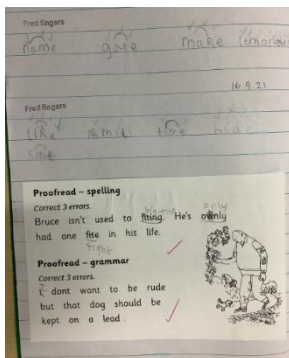 Fred fingers
name gate make lemonade
16.9.21
Fred fingers
like time hide
Proofread – spelling
Correct 3 errors.
only
Bruce isn't used to fiting. He's ownly
had one fite in his life.
fight
Proofread – grammar
Correct 3 errors.
I dont want to be rude
but that dog should be
kept on a lead.